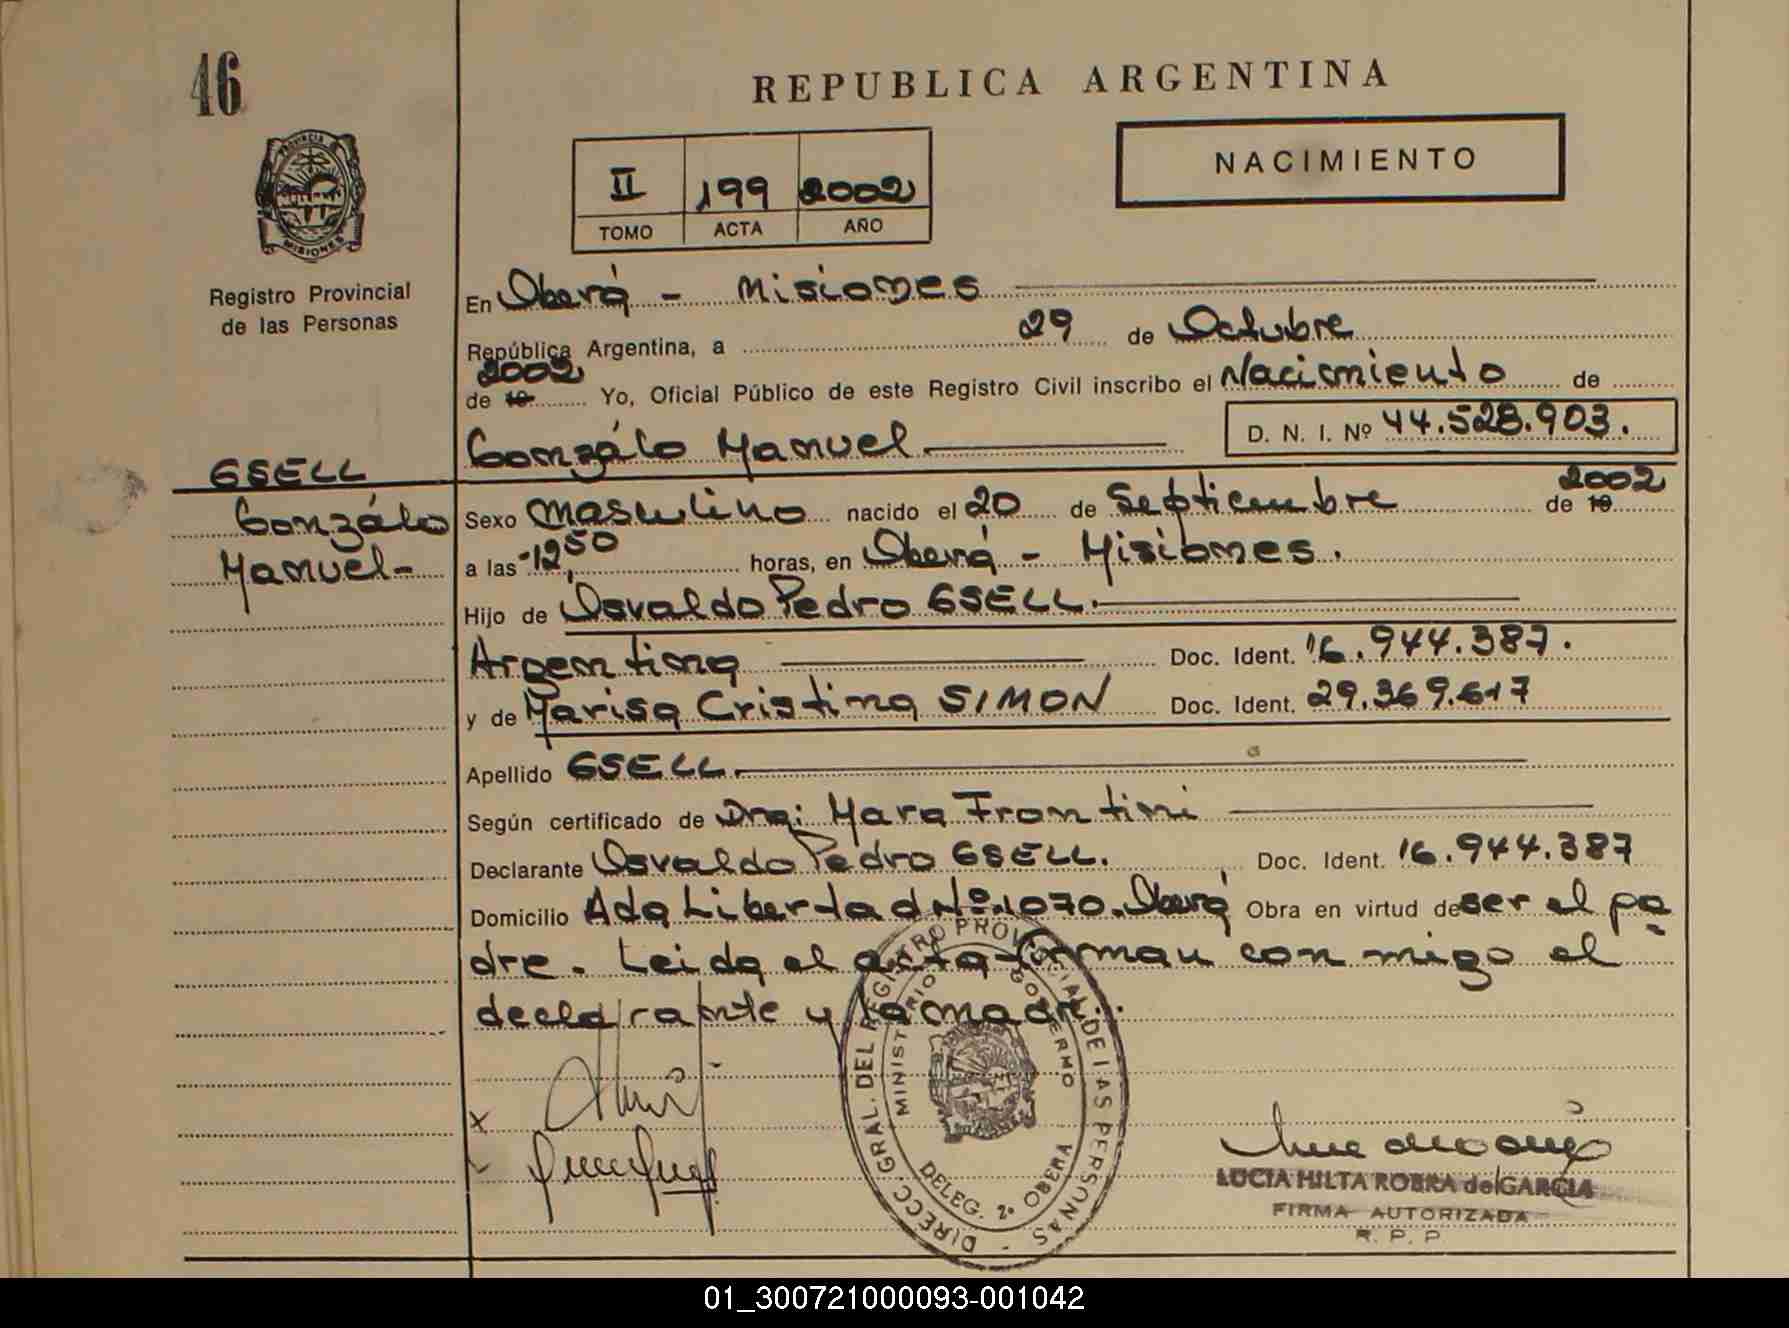 46
REPUBLICA ARGENTINA
NACIMIENTO
II 199 2002
TOMO ACTA AÑO
PROVINCIA DE MISIONES
Registro Provincial
de las Personas
En Oberá - Misiones
República Argentina, a 29 de Octubre
2002
de 19 Yo, Oficial Público de este Registro Civil inscribo el Nacimiento de
Gonzálo Manuel D. N. I. Nº 44.528.903.
GSELL
Gonzálo
Manuel-
2002
Sexo masculino nacido el 20 de Septiembre de 19
a las 12,50 horas, en Oberá - Misiones.
Hijo de Osvaldo Pedro GSELL.
Argentina Doc. Ident. 16.944.387.
y de Marisa Cristina SIMON Doc. Ident. 29.369.617
Apellido GSELL.
Según certificado de Dra: Mara Frontini
Declarante Osvaldo Pedro GSELL. Doc. Ident. 16.944.387
Domicilio Ada Libertad Nº 1070. Oberá Obra en virtud de ser el pa
dre. Leida el acta firman con migo el
declarante y la madre.
DIRECC. GRAL. DEL REGISTRO PROVINCIAL DE LAS PERSONAS -
MINISTERIO GOBIERNO
DELEG. 2ª OBERA
LUCIA HILTA ROBRA de GARCIA
FIRMA AUTORIZADA
R. P. P.
01_300721000093-001042